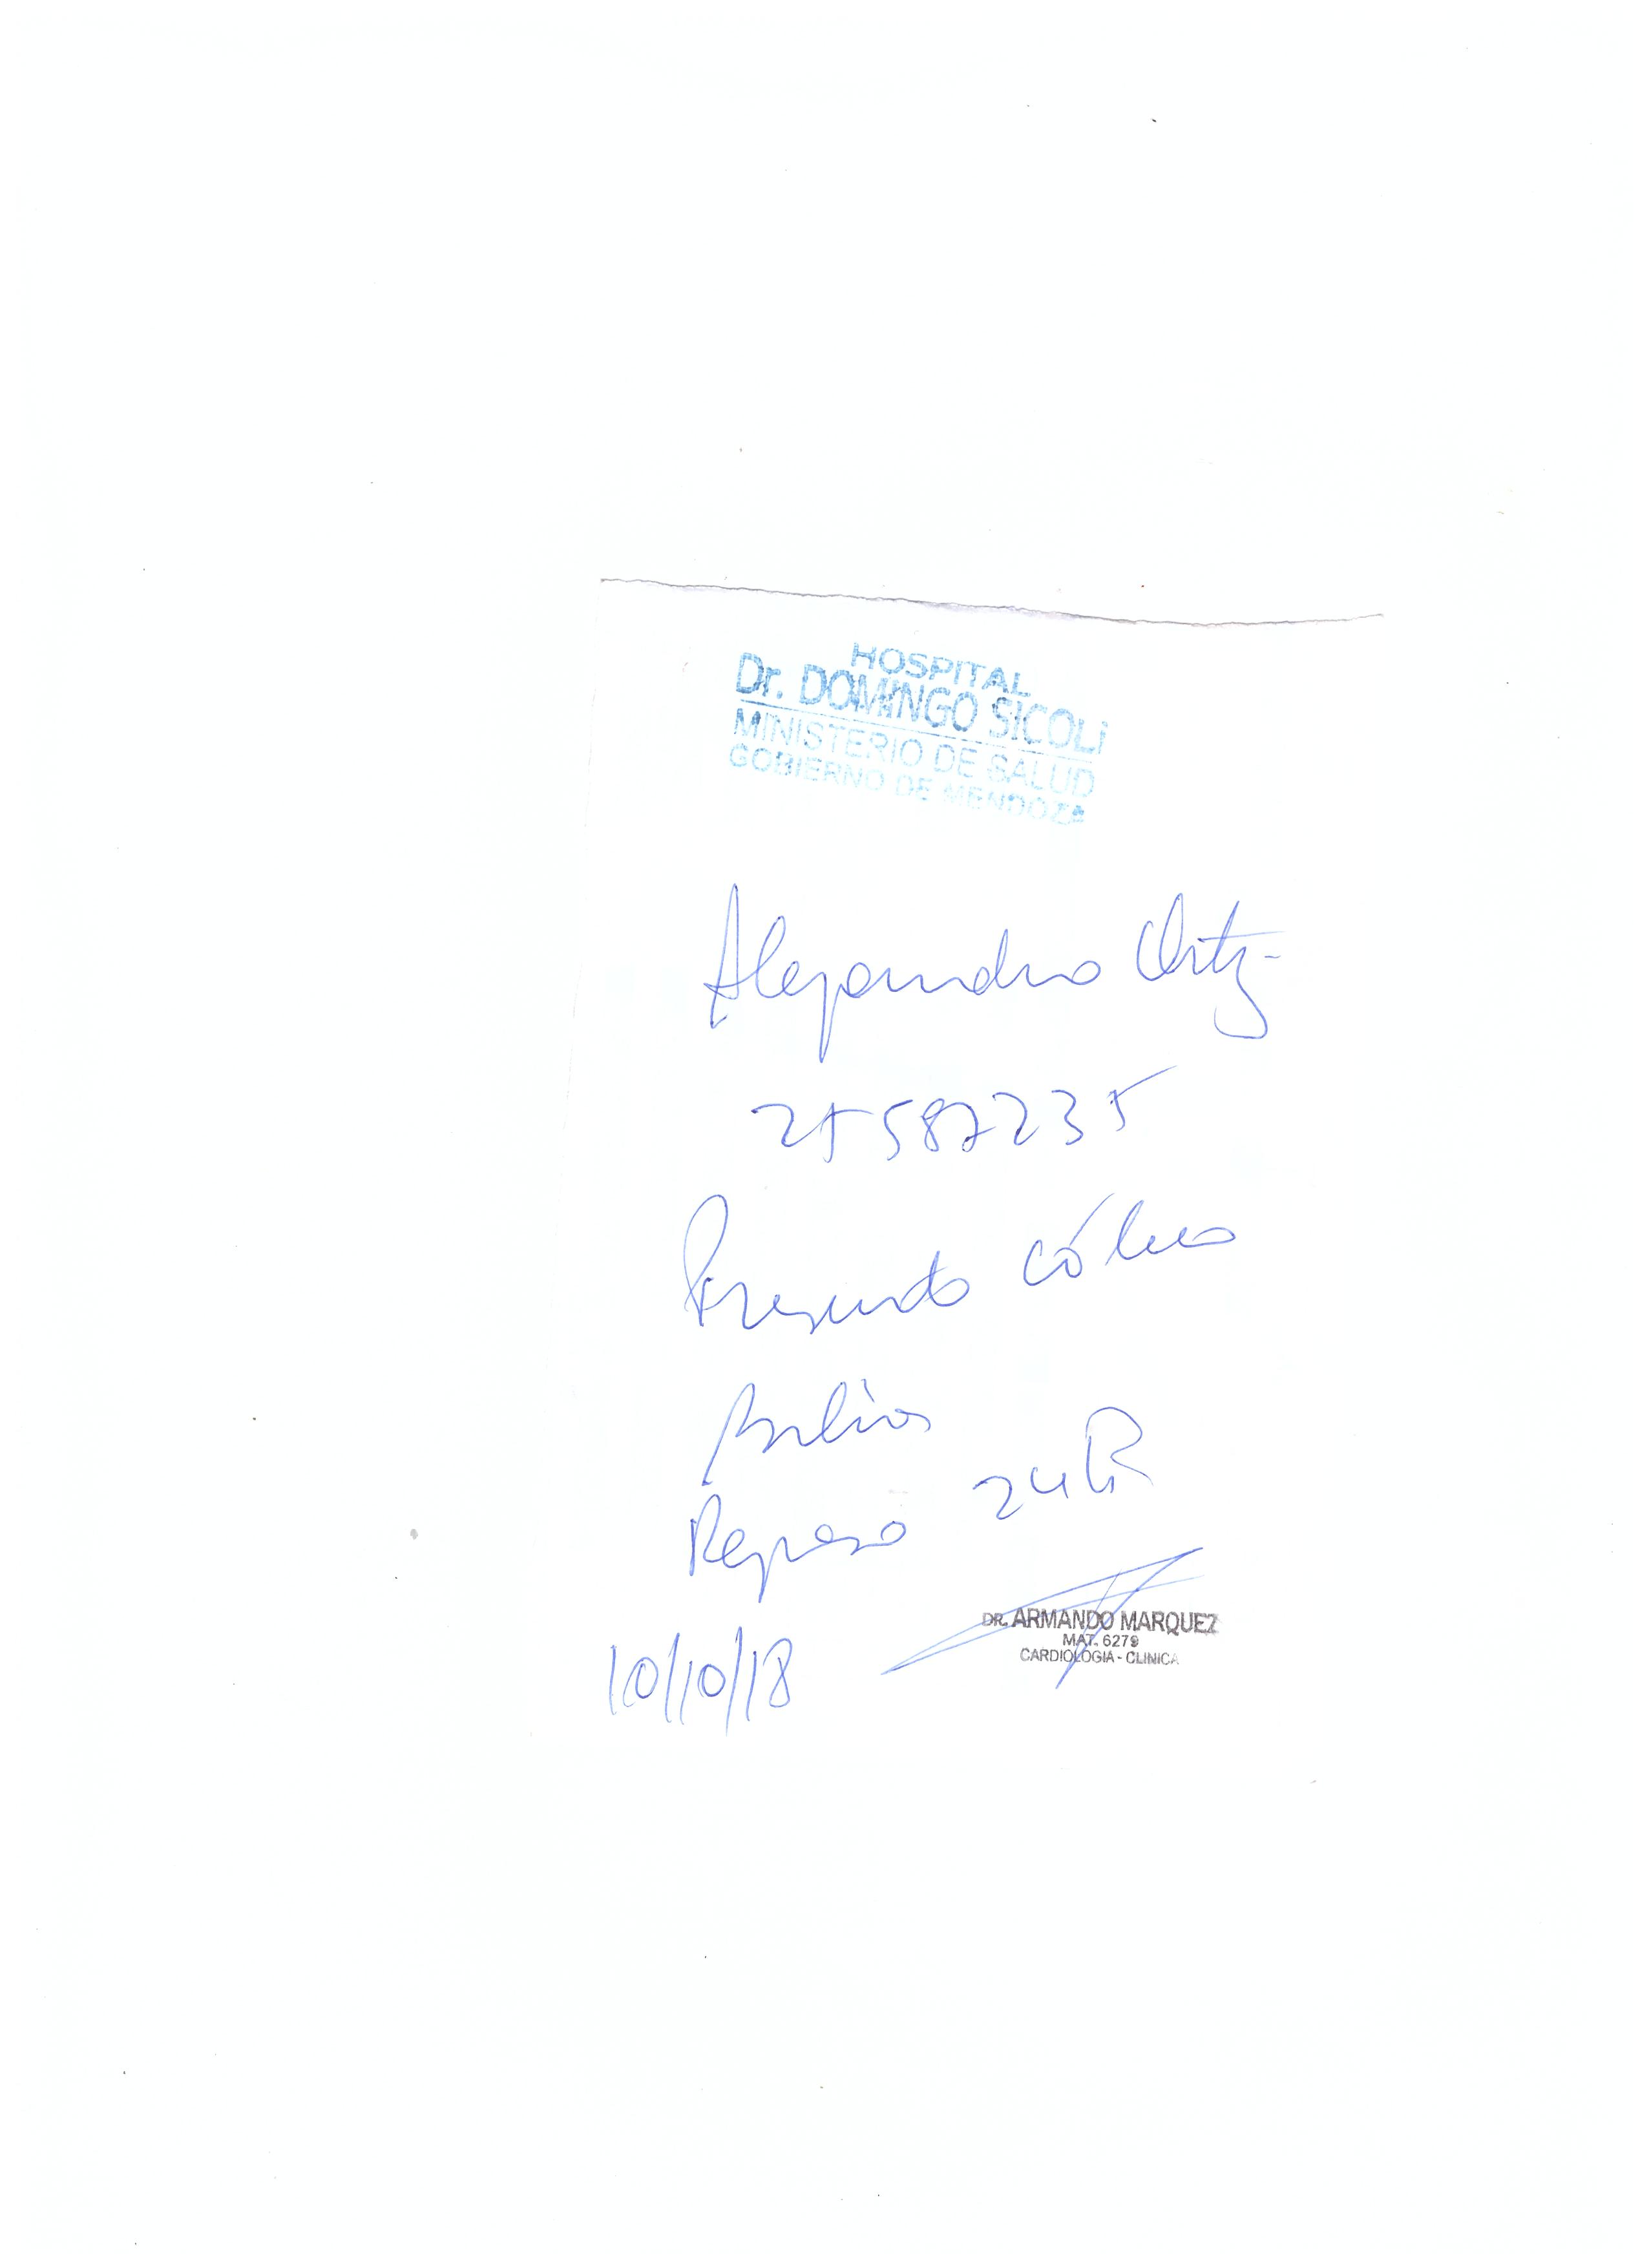 HOSPITAL
Dr. DOMINGO SICOLi
MINISTERIO DE SALUD
GOBIERNO DE MENDOZA
Alejandro Ortiz-
25587235
Presento cólico
Reposo 24 h
DR. ARMANDO MARQUEZ
MAT. 6279
CARDIOLOGIA - CLINICA
10/10/18